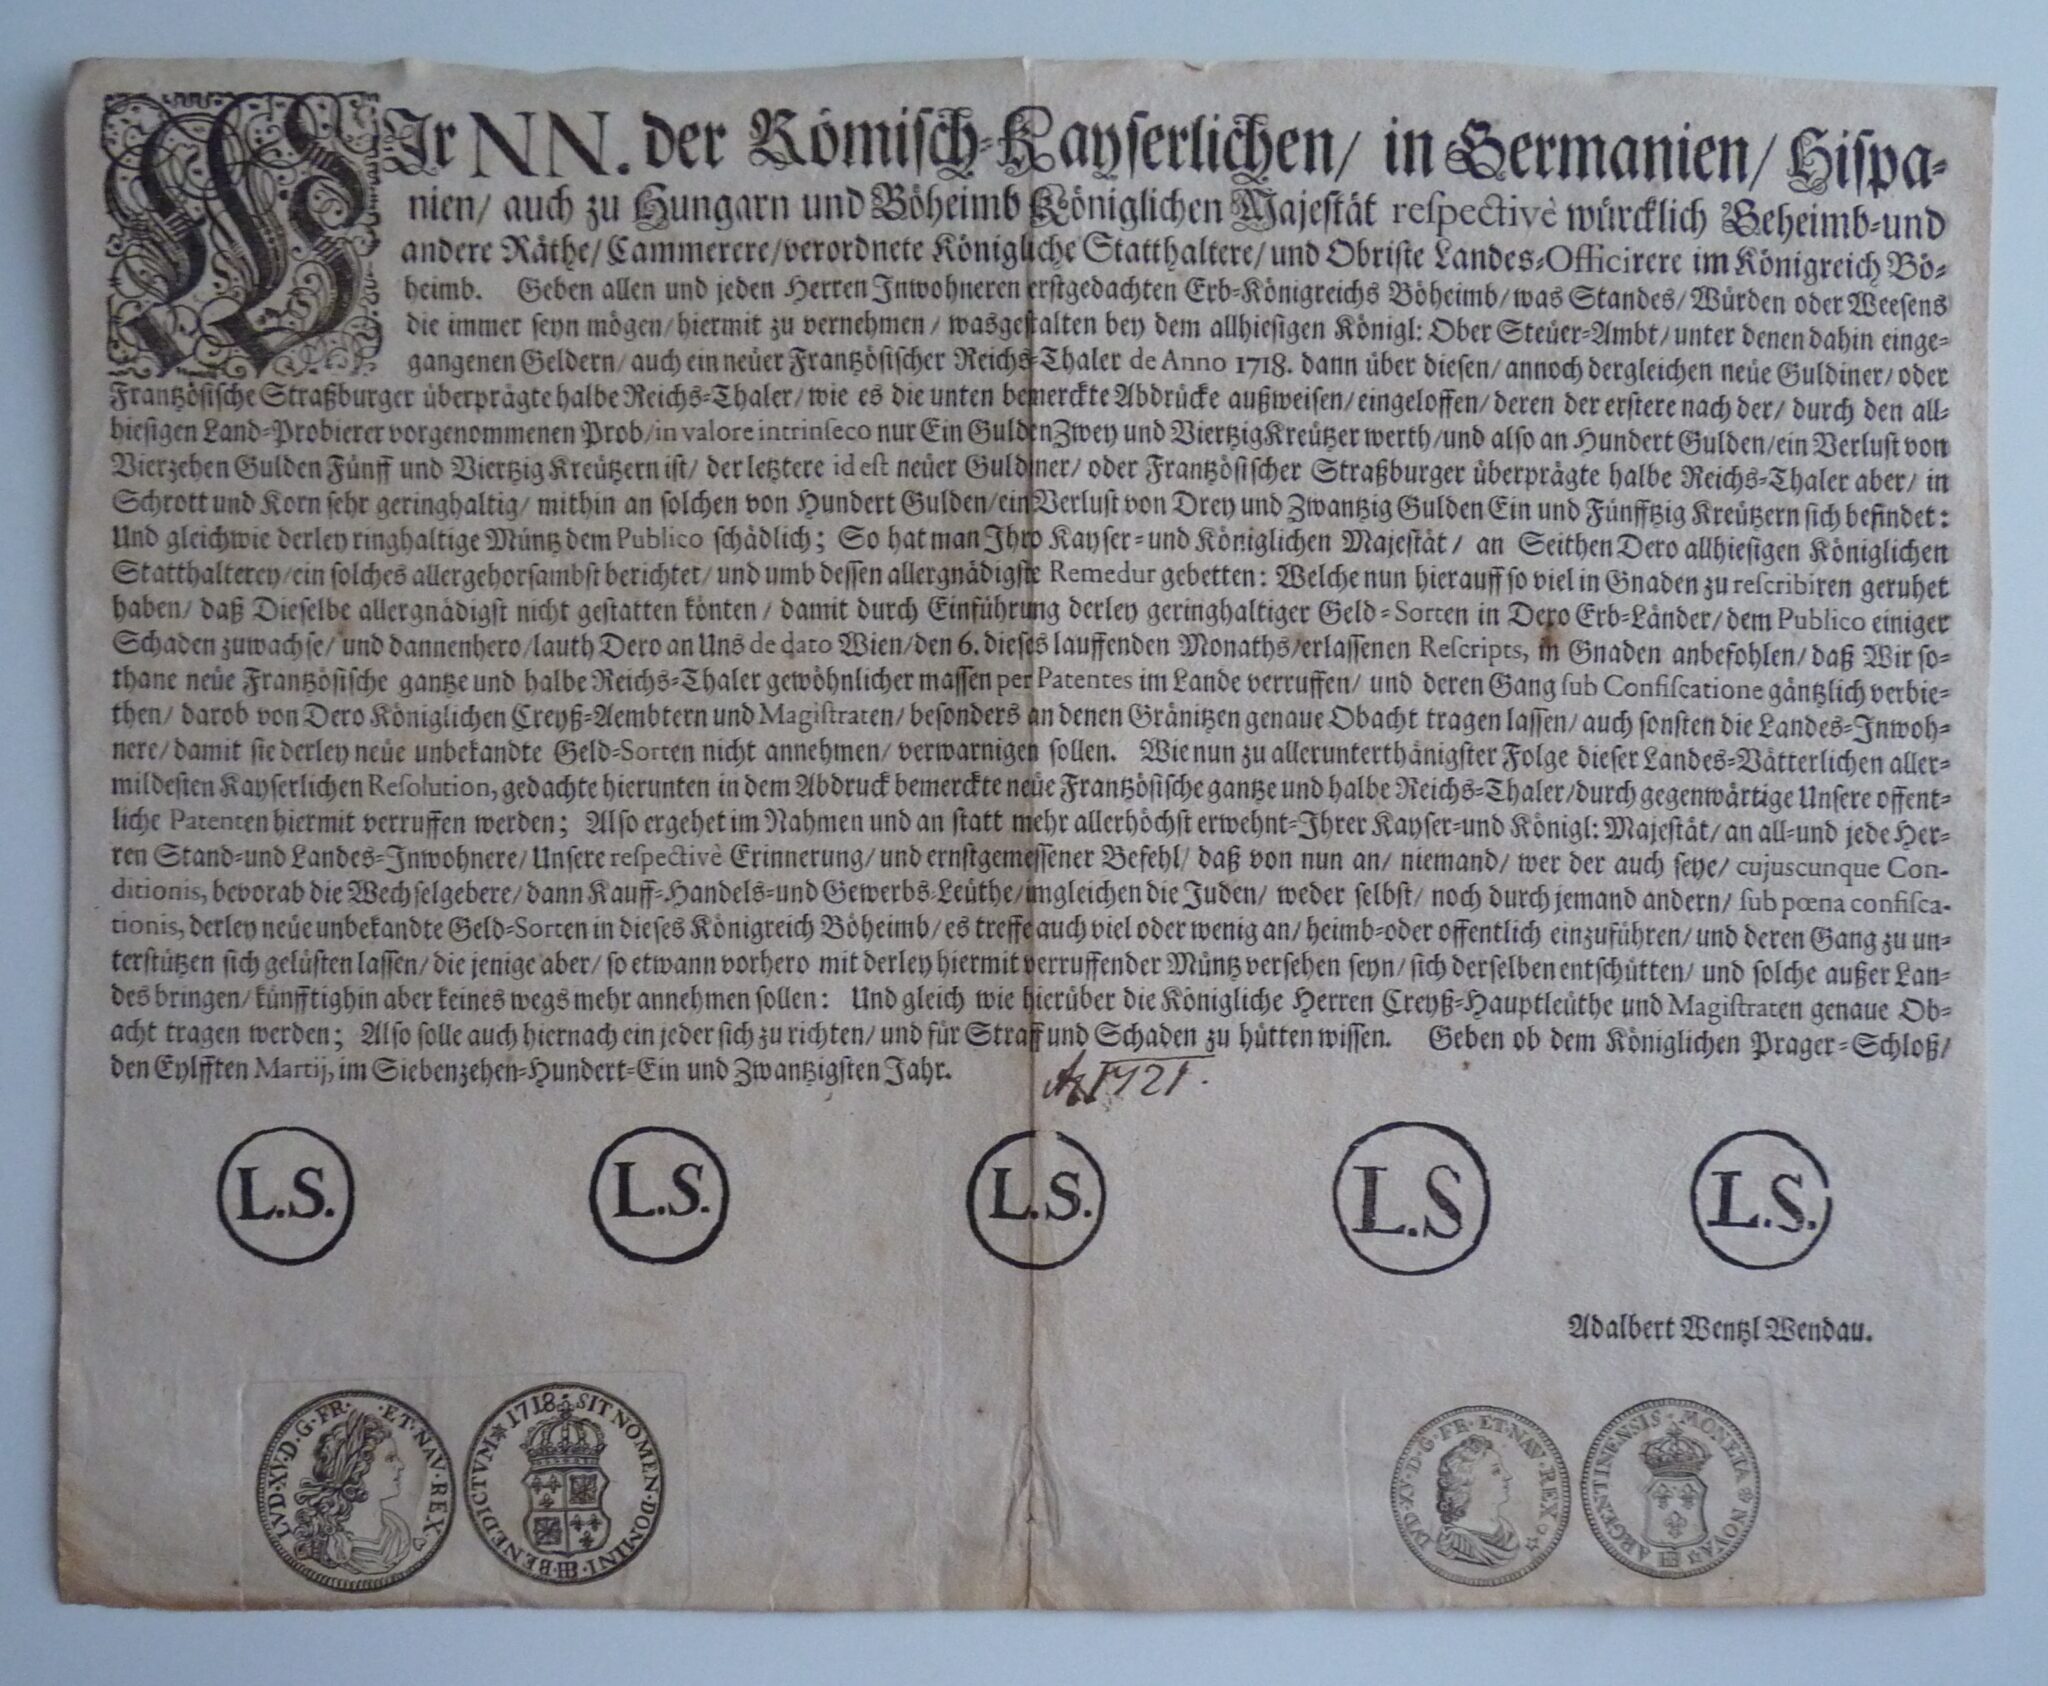 WIr NN. der Römisch-Kayserlichen/ in Germanien/ Hispa-
nien/ auch zu Hungarn und Böheimb Königlichen Majestät respectivè würcklich Geheimb-und
andere Räthe/ Cammerere/verordnete Königliche Statthaltere/ und Obriste Landes-Officirere im Königreich Bö-
heimb. Geben allen und jeden Herren Inwohneren erstgedachten Erb-Königreichs Böheimb/ was Standes/ Würden oder Weesens
die immer seyn mögen/ hiermit zu vernehmen/ wasgestalten bey dem allhiesigen Königl: Ober Steüer-Ambt/ unter denen dahin einge-
gangenen Geldern/ auch ein neüer Frantzösischer Reichs-Thaler de Anno 1718. dann über diesen/ annoch dergleichen neüe Guldiner/ oder
Frantzösische Straßburger überprägte halbe Reichs-Thaler/ wie es die unten bemerckte Abdrücke außweisen/ eingeloffen/ deren der erstere nach der/ durch den all-
hiesigen Land-Probierer vorgenommenen Prob/ in valore intrinseco nur Ein Gulden Zwey und Viertzig Kreützer werth/ und also an Hundert Gulden/ ein Verlust von
Vierzehen Gulden Fünff und Viertzig Kreützern ist/ der letztere id est neüer Guldiner/ oder Frantzösischer Straßburger überprägte halbe Reichs-Thaler aber/ in
Schrott und Korn sehr geringhaltig/ mithin an solchen von Hundert Gulden/ ein Verlust von Drey und Zwantzig Gulden Ein und Fünfftzig Kreützern sich befindet:
Und gleichwie derley ringhaltige Müntz dem Publico schädlich; So hat man Ihro Kayser-und Königlichen Majestät/ an Seithen Dero allhiesigen Königlichen
Statthalterey/ ein solches allergehorsambst berichtet/ und umb dessen allergnädigste Remedur gebetten: Welche nun hierauff so viel in Gnaden zu rescribiren geruhet
haben/ daß Dieselbe allergnädigst nicht gestatten könten/ damit durch Einführung derley geringhaltiger Geld-Sorten in Dero Erb-Länder/ dem Publico einiger
Schaden zuwachse/ und dannenhero/ lauth Dero an Uns de dato Wien/ den 6. dieses lauffenden Monaths/ erlassenen Rescripts, in Gnaden anbefohlen/ daß Wir so-
thane neüe Frantzösische gantze und halbe Reichs-Thaler gewöhnlicher massen per Patentes im Lande verruffen/ und deren Gang sub Confiscatione gäntzlich verbie-
then/ darob von Dero Königlichen Creyß-Aembtern und Magistraten/ besonders an denen Gränitzen genaue Obacht tragen lassen/ auch sonsten die Landes-Inwoh-
nere/ damit sie derley neüe unbekandte Geld-Sorten nicht annehmen/ verwarnigen sollen. Wie nun zu allerunterthänigster Folge dieser Landes-Vätterlichen aller-
mildesten Kayserlichen Resolution, gedachte hierunten in dem Abdruck bemerckte neüe Frantzösische gantze und halbe Reichs-Thaler/ durch gegenwärtige Unsere offent-
liche Patenten hiermit verruffen werden; Also ergehet im Nahmen und an statt mehr allerhöchst erwehnt-Ihrer Kayser-und Königl: Majestät/ an all-und jede Her-
ren Stand-und Landes-Inwohnere/ Unsere respectivè Erinnerung/ und ernstgemessener Befehl/ daß von nun an/ niemand/ wer der auch seye/ cujuscunque Con-
ditionis, bevorab die Wechselgebere/ dann Kauff-Handels-und Gewerbs-Leüthe/ imgleichen die Juden/ weder selbst/ noch durch jemand andern/ sub pœna confisca-
tionis, derley neüe unbekandte Geld-Sorten in dieses Königreich Böheimb/ es treffe auch viel oder wenig an/ heimb-oder offentlich einzuführen/ und deren Gang zu un-
terstützen sich gelüsten lassen/ die jenige aber/ so etwann vorhero mit derley hiermit verruffender Müntz versehen seyn/ sich derselben entschütten/ und solche außer Lan-
des bringen/ künfftighin aber keines wegs mehr annehmen sollen: Und gleich wie hierüber die Königliche Herren Creyß-Hauptleüthe und Magistraten genaue Ob-
acht tragen werden; Also solle auch hiernach ein jeder sich zu richten/ und für Straff und Schaden zu hütten wissen. Geben ob dem Königlichen Prager-Schloß/
den Eylfften Martij, im Siebenzehen-Hundert-Ein und Zwantzigsten Jahr. 1721.
L.S. L.S. L.S. L.S L.S.
Adalbert Wentzl Wendau.
LVD·XV·D·G·FR· ·ET·NAV·REX· 1718 SIT NOMEN·DOMINI· BENEDICTVM
LVD·XV·D·G·FR·ET·NAV·REX· MONETA NOVA ARGENTINENSIS·